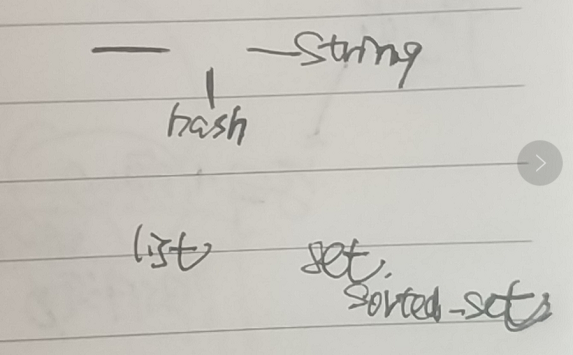 String
hash
list set.
Sorted-set